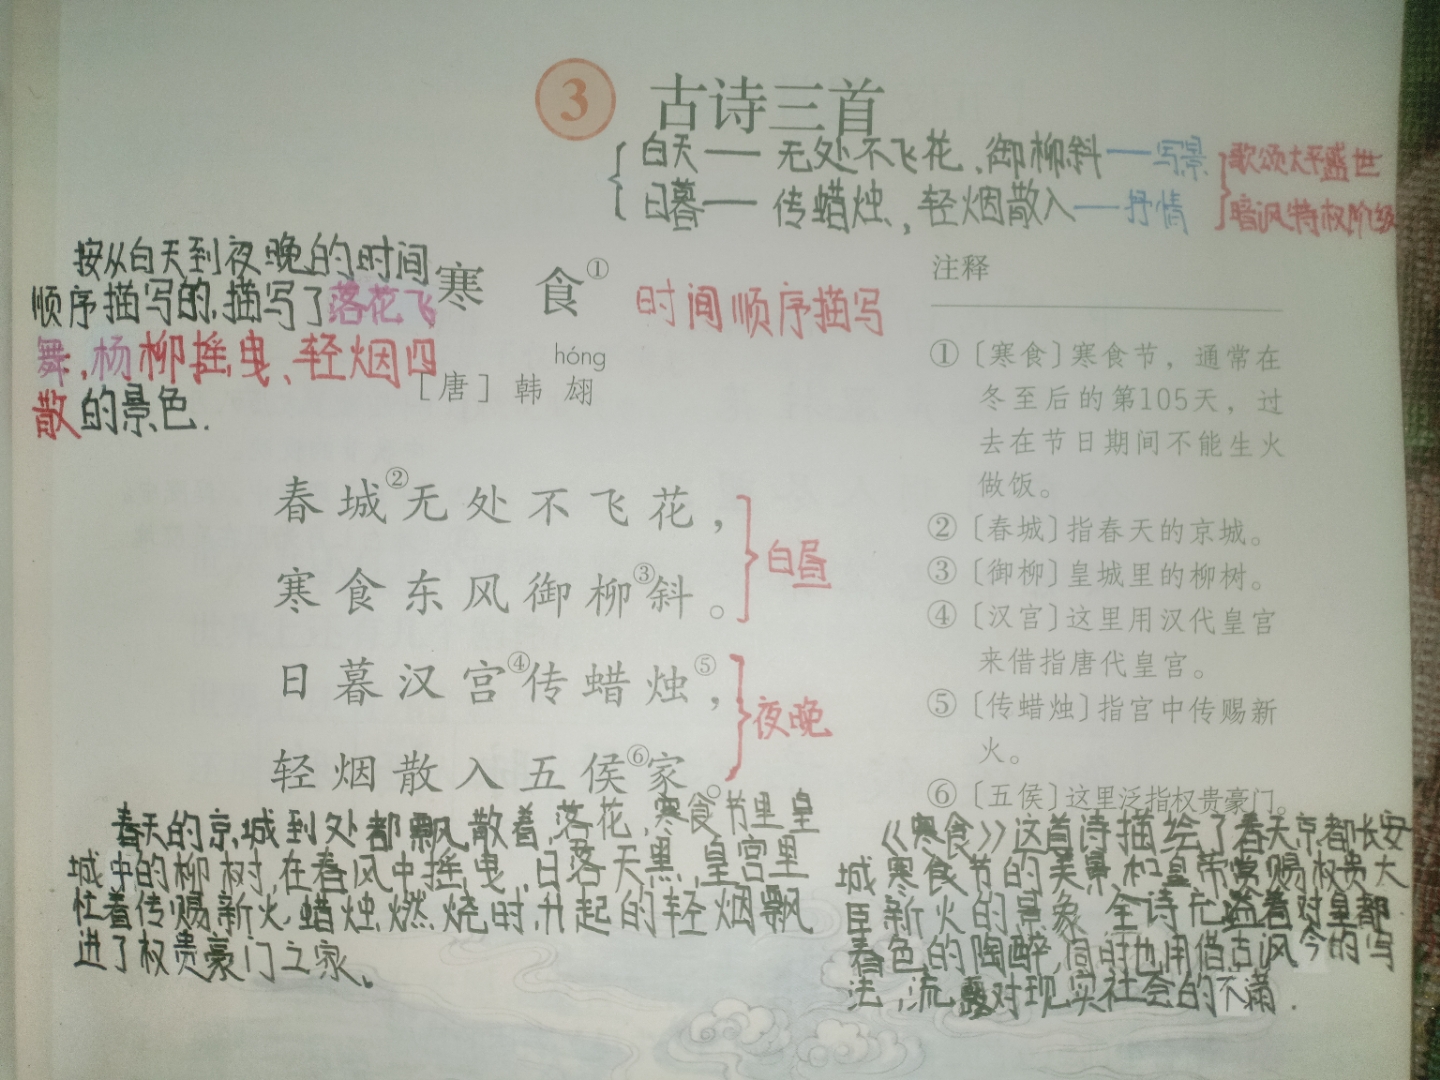 3 古诗三首
白天——无处不飞花、御柳斜——写景
日暮——传蜡烛，轻烟散入——抒情
歌颂太平盛世
暗讽特权阶级
按从白天到夜晚的时间
顺序描写的,描写了落花飞
舞、杨柳摇曳、轻烟四
散的景色.
寒 食①
时间顺序描写
hóng
［唐］韩 翃
春城②无处不飞花，
寒食东风御柳③斜。
白昼
日暮汉宫④传蜡烛⑤，
轻烟散入五侯⑥家。
夜晚
注释
①〔寒食〕寒食节，通常在
冬至后的第105天，过
去在节日期间不能生火
做饭。
②〔春城〕指春天的京城。
③〔御柳〕皇城里的柳树。
④〔汉宫〕这里用汉代皇宫
来借指唐代皇宫。
⑤〔传蜡烛〕指宫中传赐新
火。
⑥〔五侯〕这里泛指权贵豪门。
春天的京城到处都飘散着落花,寒食节里皇
城中的柳树,在春风中摇曳,日落天黑,皇宫里
忙着传赐新火,蜡烛燃烧时升起的轻烟飘
进了权贵豪门之家。
《寒食》这首诗描绘了春天京都长安
城寒食节的美景,和皇帝赏赐权贵大
臣新火的景象 全诗充溢着对皇都
春色的陶醉,同时也用借古讽今的写
法,流露对现实社会的不满.